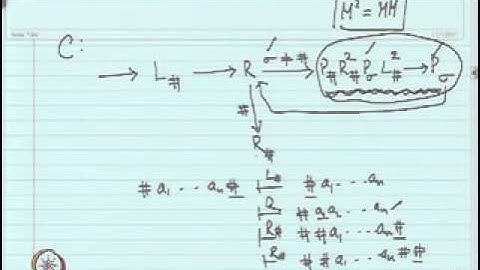 M² = MM
C:
→ L# → R →(σ≠#) P# R#² Pσ L#² → Pσ
#
R#
# a₁ ... aₙ # |L# # a₁ ... aₙ
|R # a₁ a₂ ... aₙ
|R# # # a₁ ... aₙ #
|R# # # a₁ ... aₙ # #